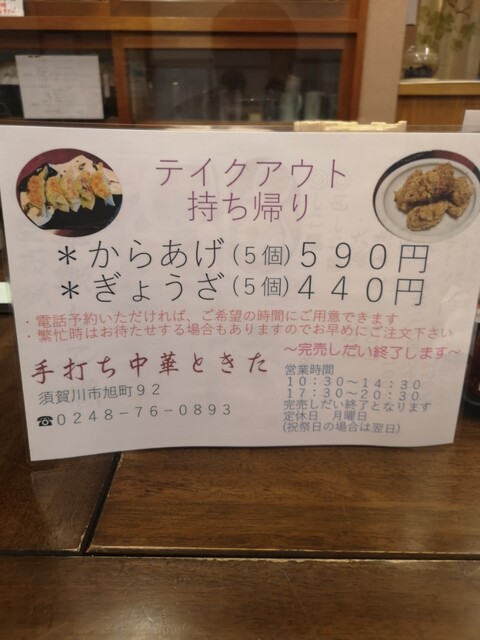 テイクアウト
持ち帰り
＊からあげ（５個）５９０円
＊ぎょうざ（５個）４４０円
・電話予約いただければ、ご希望の時間にご用意できます
・繁忙時はお待たせする場合もありますのでお早めにご注文下さい
～完売しだい終了します～
手打ち中華ときた
須賀川市旭町９２
☎０２４８－７６－０８９３
営業時間
１０：３０～１４：３０
１７：３０～２０：３０
完売しだい終了となります
定休日　月曜日
(祝祭日の場合は翌日)